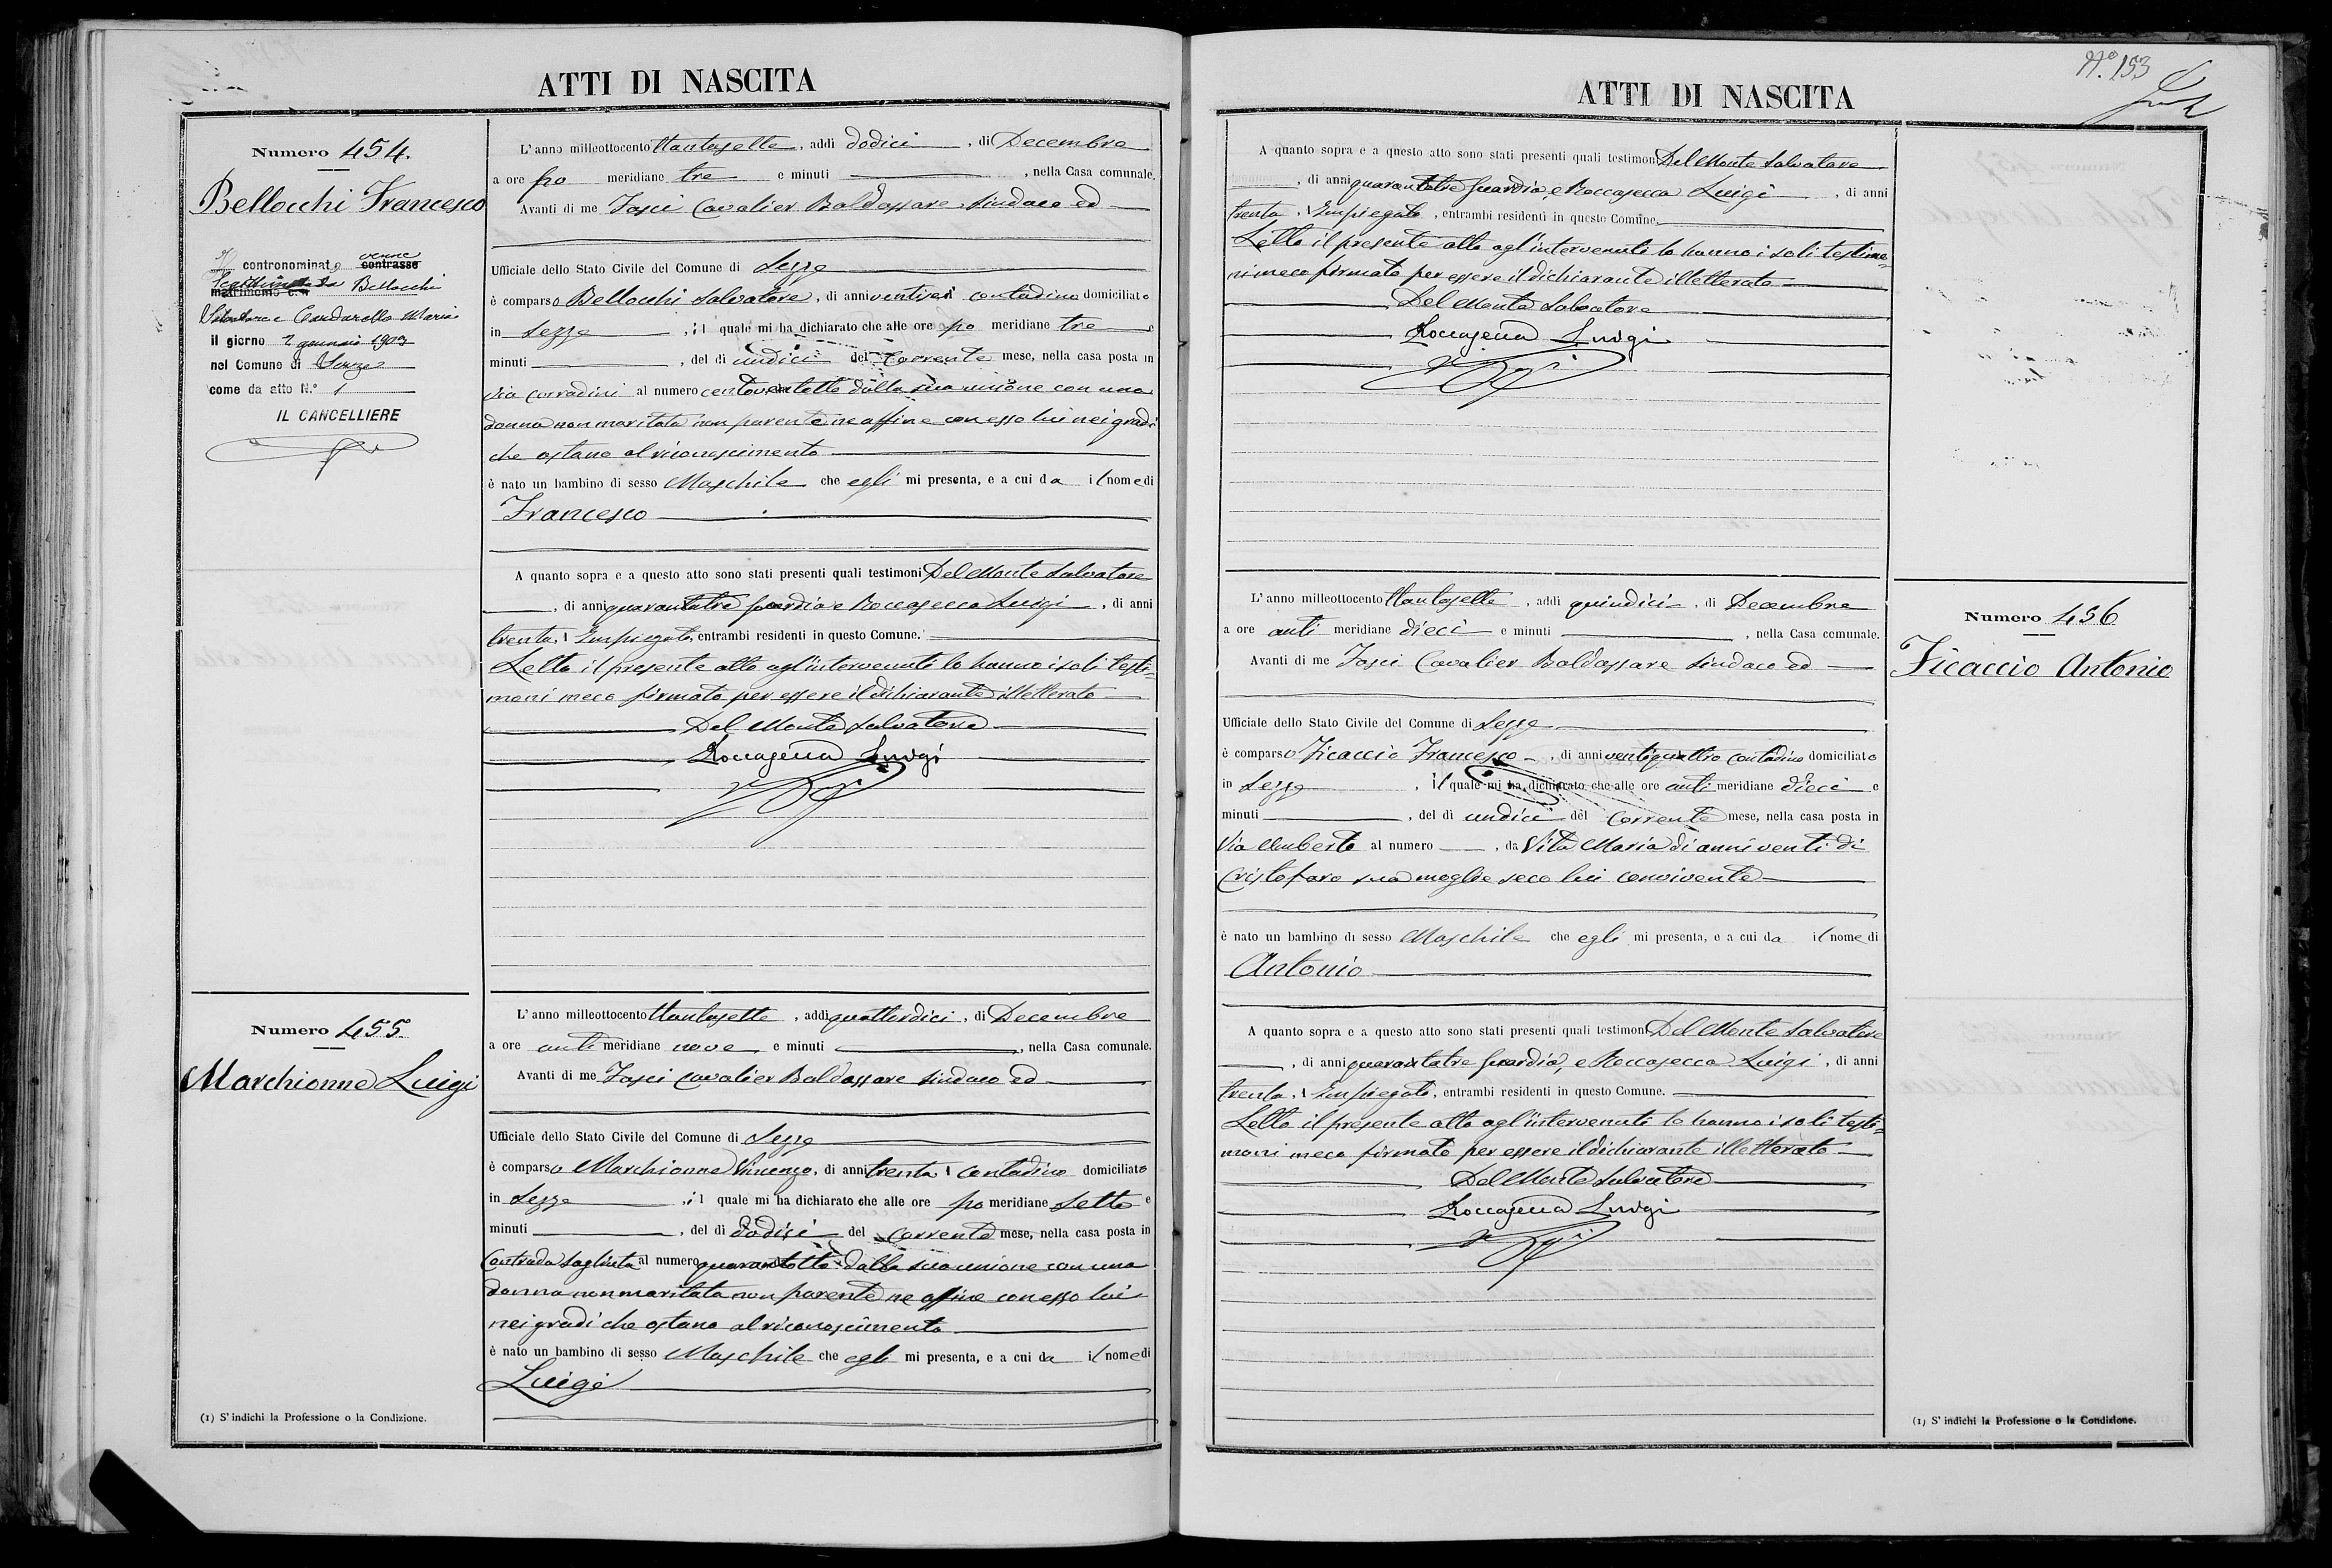 ATTI DI NASCITA
Numero 454.
Bellocchi Francesco
Il contronominato venne contrasse
legittimato da Bellocchi
matrimonio con
Salvatore e Cardarello Maria
il giorno 2 gennaio 1903
nel Comune di Sezze
come da atto N.º 1
IL CANCELLIERE
L'anno milleottocento ttantasette, addi dodici, di Decembre
a ore po meridiane tre e minuti , nella Casa comunale.
Avanti di me Fasci Cavalier Baldassare Sindaco ed
Ufficiale dello Stato Civile del Comune di Sezze
è comparso Bellocchi Salvatore, di anni ventisei contadino domiciliato
in Sezze, il quale mi ha dichiarato che alle ore po meridiane tre e
minuti , del dì undici del corrente mese, nella casa posta in
Via Corradini al numero centoventotto dalla sua unione con una
donna non maritata non parente ne affine con esso lui nei gradi
che ostano al riconoscimento
è nato un bambino di sesso Maschile che egli mi presenta, e a cui da il nome di
Francesco
A quanto sopra e a questo atto sono stati presenti quali testimoni Del Monte Salvatore
, di anni quarantatre guardia e Roccasecca Luigi, di anni
trenta, Impiegato, entrambi residenti in questo Comune.
Letto il presente atto agl'intervenuti lo hanno i soli testi=
moni meco firmato per essere il dichiarante illetterato
Del Monte Salvatore
Roccasecca Luigi
Numero 455.
Marchionne Luigi
L'anno milleottocento ttantasette, addi quattordici, di Decembre
a ore anti meridiane nove e minuti , nella Casa comunale.
Avanti di me Fasci Cavalier Baldassare Sindaco ed
Ufficiale dello Stato Civile del Comune di Sezze
è comparso Marchionne Vincenzo, di anni trenta contadino domiciliato
in Sezze, il quale mi ha dichiarato che alle ore po meridiane sette e
minuti , del dì dodici del corrente mese, nella casa posta in
Contrada al numero quarantotto dalla sua unione con una
donna non maritata non parente ne affine con esso lui
nei gradi che ostano al riconoscimento
è nato un bambino di sesso Maschile che egli mi presenta, e a cui da il nome di
Luigi
(1) S'indichi la Professione o la Condizione.
N.º 153
ATTI DI NASCITA
A quanto sopra e a questo atto sono stati presenti quali testimoni Del Monte Salvatore
, di anni quarantatre guardia, e Roccasecca Luigi, di anni
trenta, Impiegato, entrambi residenti in questo Comune.
Letto il presente atto agl'intervenuti lo hanno i soli testimo=
ni meco firmato per essere il dichiarante illetterato
Del Monte Salvatore
Roccasecca Luigi
Numero 456
Ficaccio Antonio
L'anno milleottocento ttantasette, addi quindici, di Decembre
a ore anti meridiane dieci e minuti , nella Casa comunale.
Avanti di me Fasci Cavalier Baldassare Sindaco ed
Ufficiale dello Stato Civile del Comune di Sezze
è comparso Ficaccio Francesco, di anni ventiquattro contadino domiciliato
in Sezze, il quale mi ha dichiarato che alle ore anti meridiane dieci e
minuti , del dì undici del corrente mese, nella casa posta in
Via Umberto al numero , da Vita Maria di anni venti di
Cristofaro sua moglie seco lui convivente
è nato un bambino di sesso Maschile che egli mi presenta, e a cui da il nome di
Antonio
A quanto sopra e a questo atto sono stati presenti quali testimoni Del Monte Salvatore
, di anni quarantatre guardia, e Roccasecca Luigi, di anni
trenta, Impiegato, entrambi residenti in questo Comune.
Letto il presente atto agl'intervenuti lo hanno i soli testi=
moni meco firmato per essere il dichiarante illetterato
Del Monte Salvatore
Roccasecca Luigi
(1) S'indichi la Professione o la Condizione.